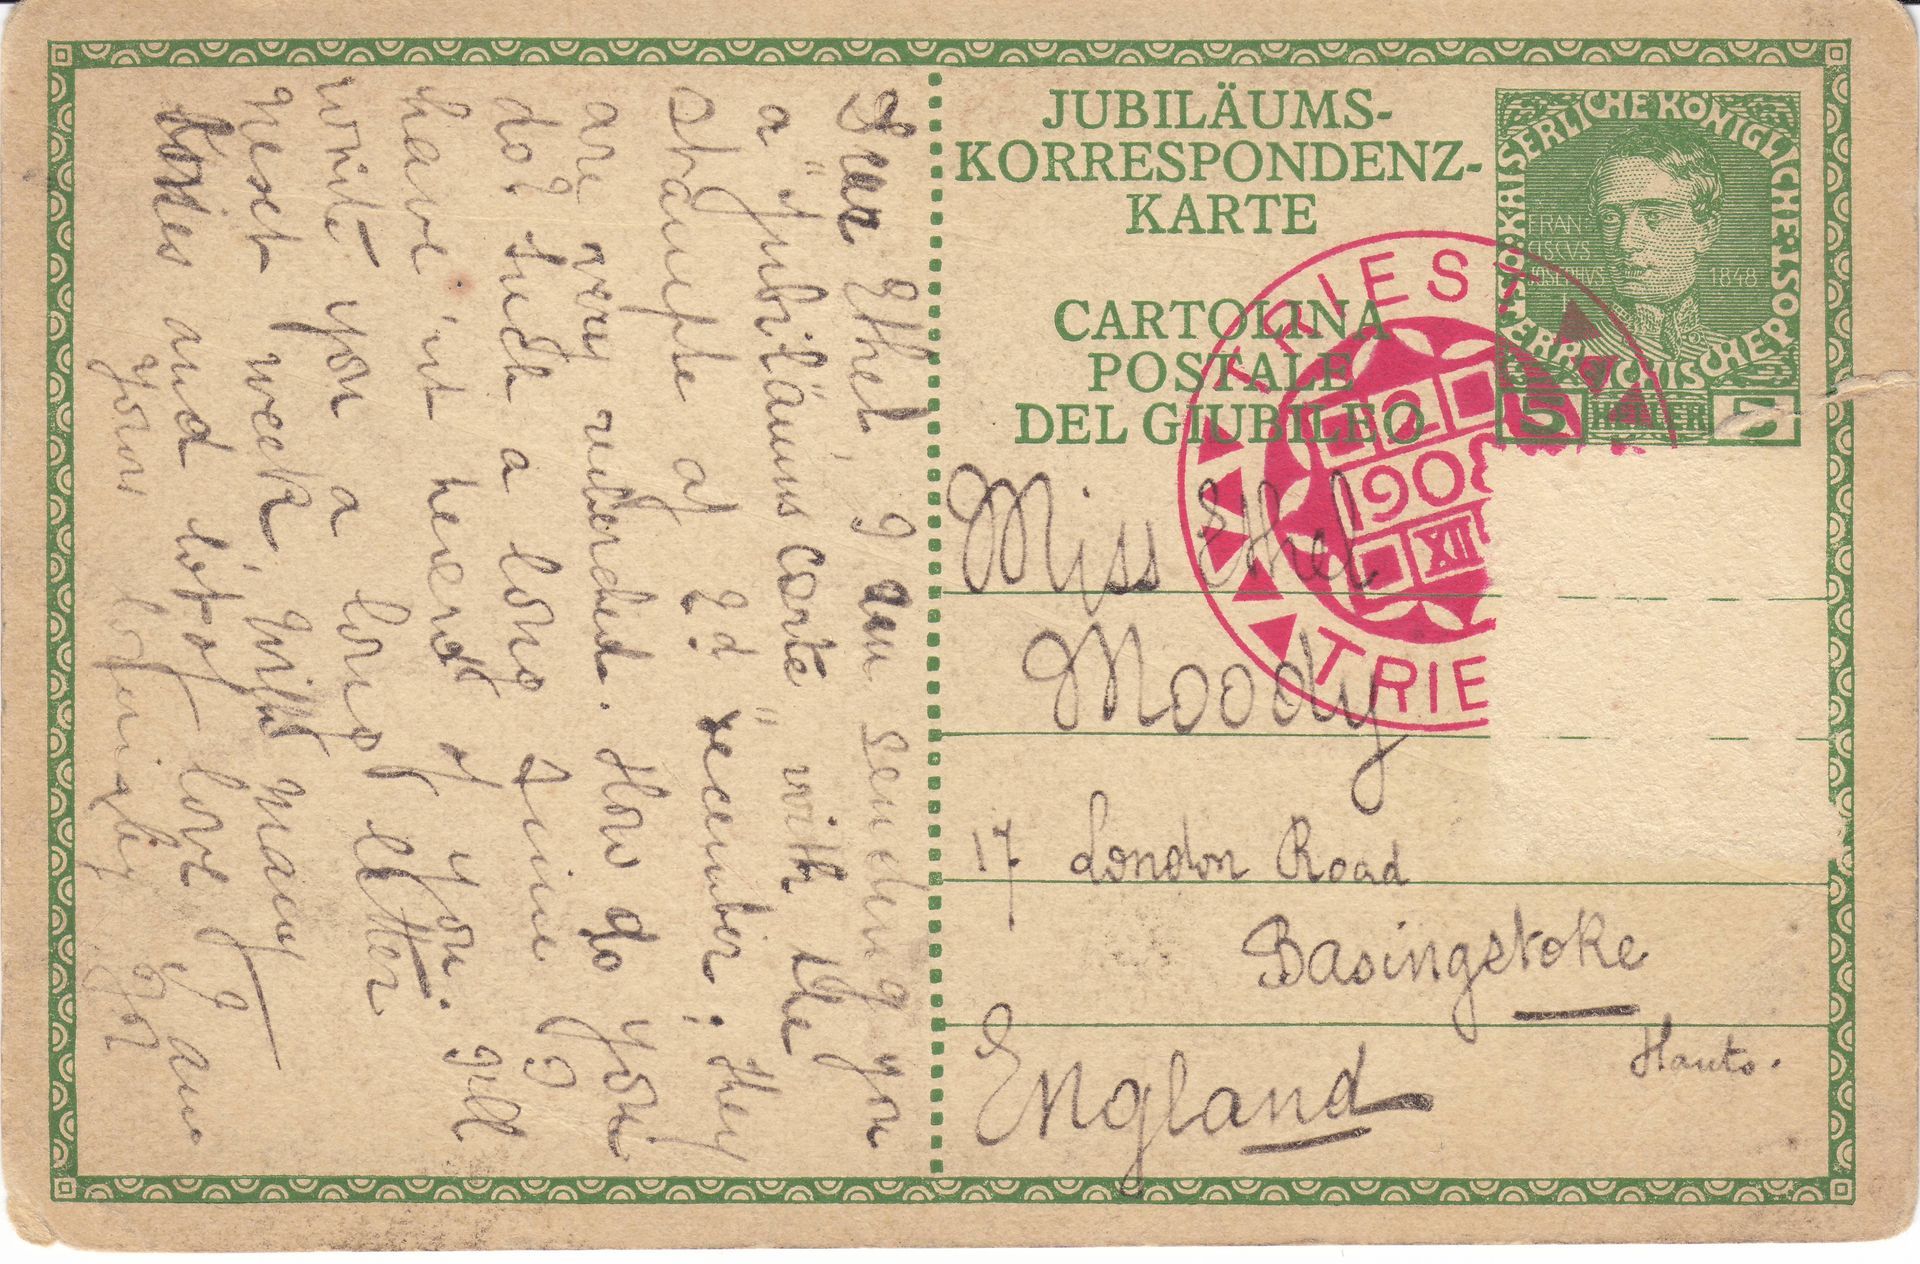 Dear Ethel, I am sending you
a "Jubiläums Carte" with the
stampe of 2d December; they
are very
How do you
do? Such a long sine I
have'nt heard of you. I'll
write you a long letter
next week, with many
kisses and lot of love I am
Yours lovingly
JUBILÄUMS-
KORRESPONDENZ-
KARTE
CARTOLINA
POSTALE
DEL GIUBILEO
KAISERLICHE KÖNIGLICHE ÖSTERREICHISCHE POST
FRAN-
CISCVS
IOSEPHVS
I
1848
5 HELLER 5
TRIEST
2
1908
XII
TRIE
Miss Ethel
Moody
17 London Road
Basingstoke
Hants.
England